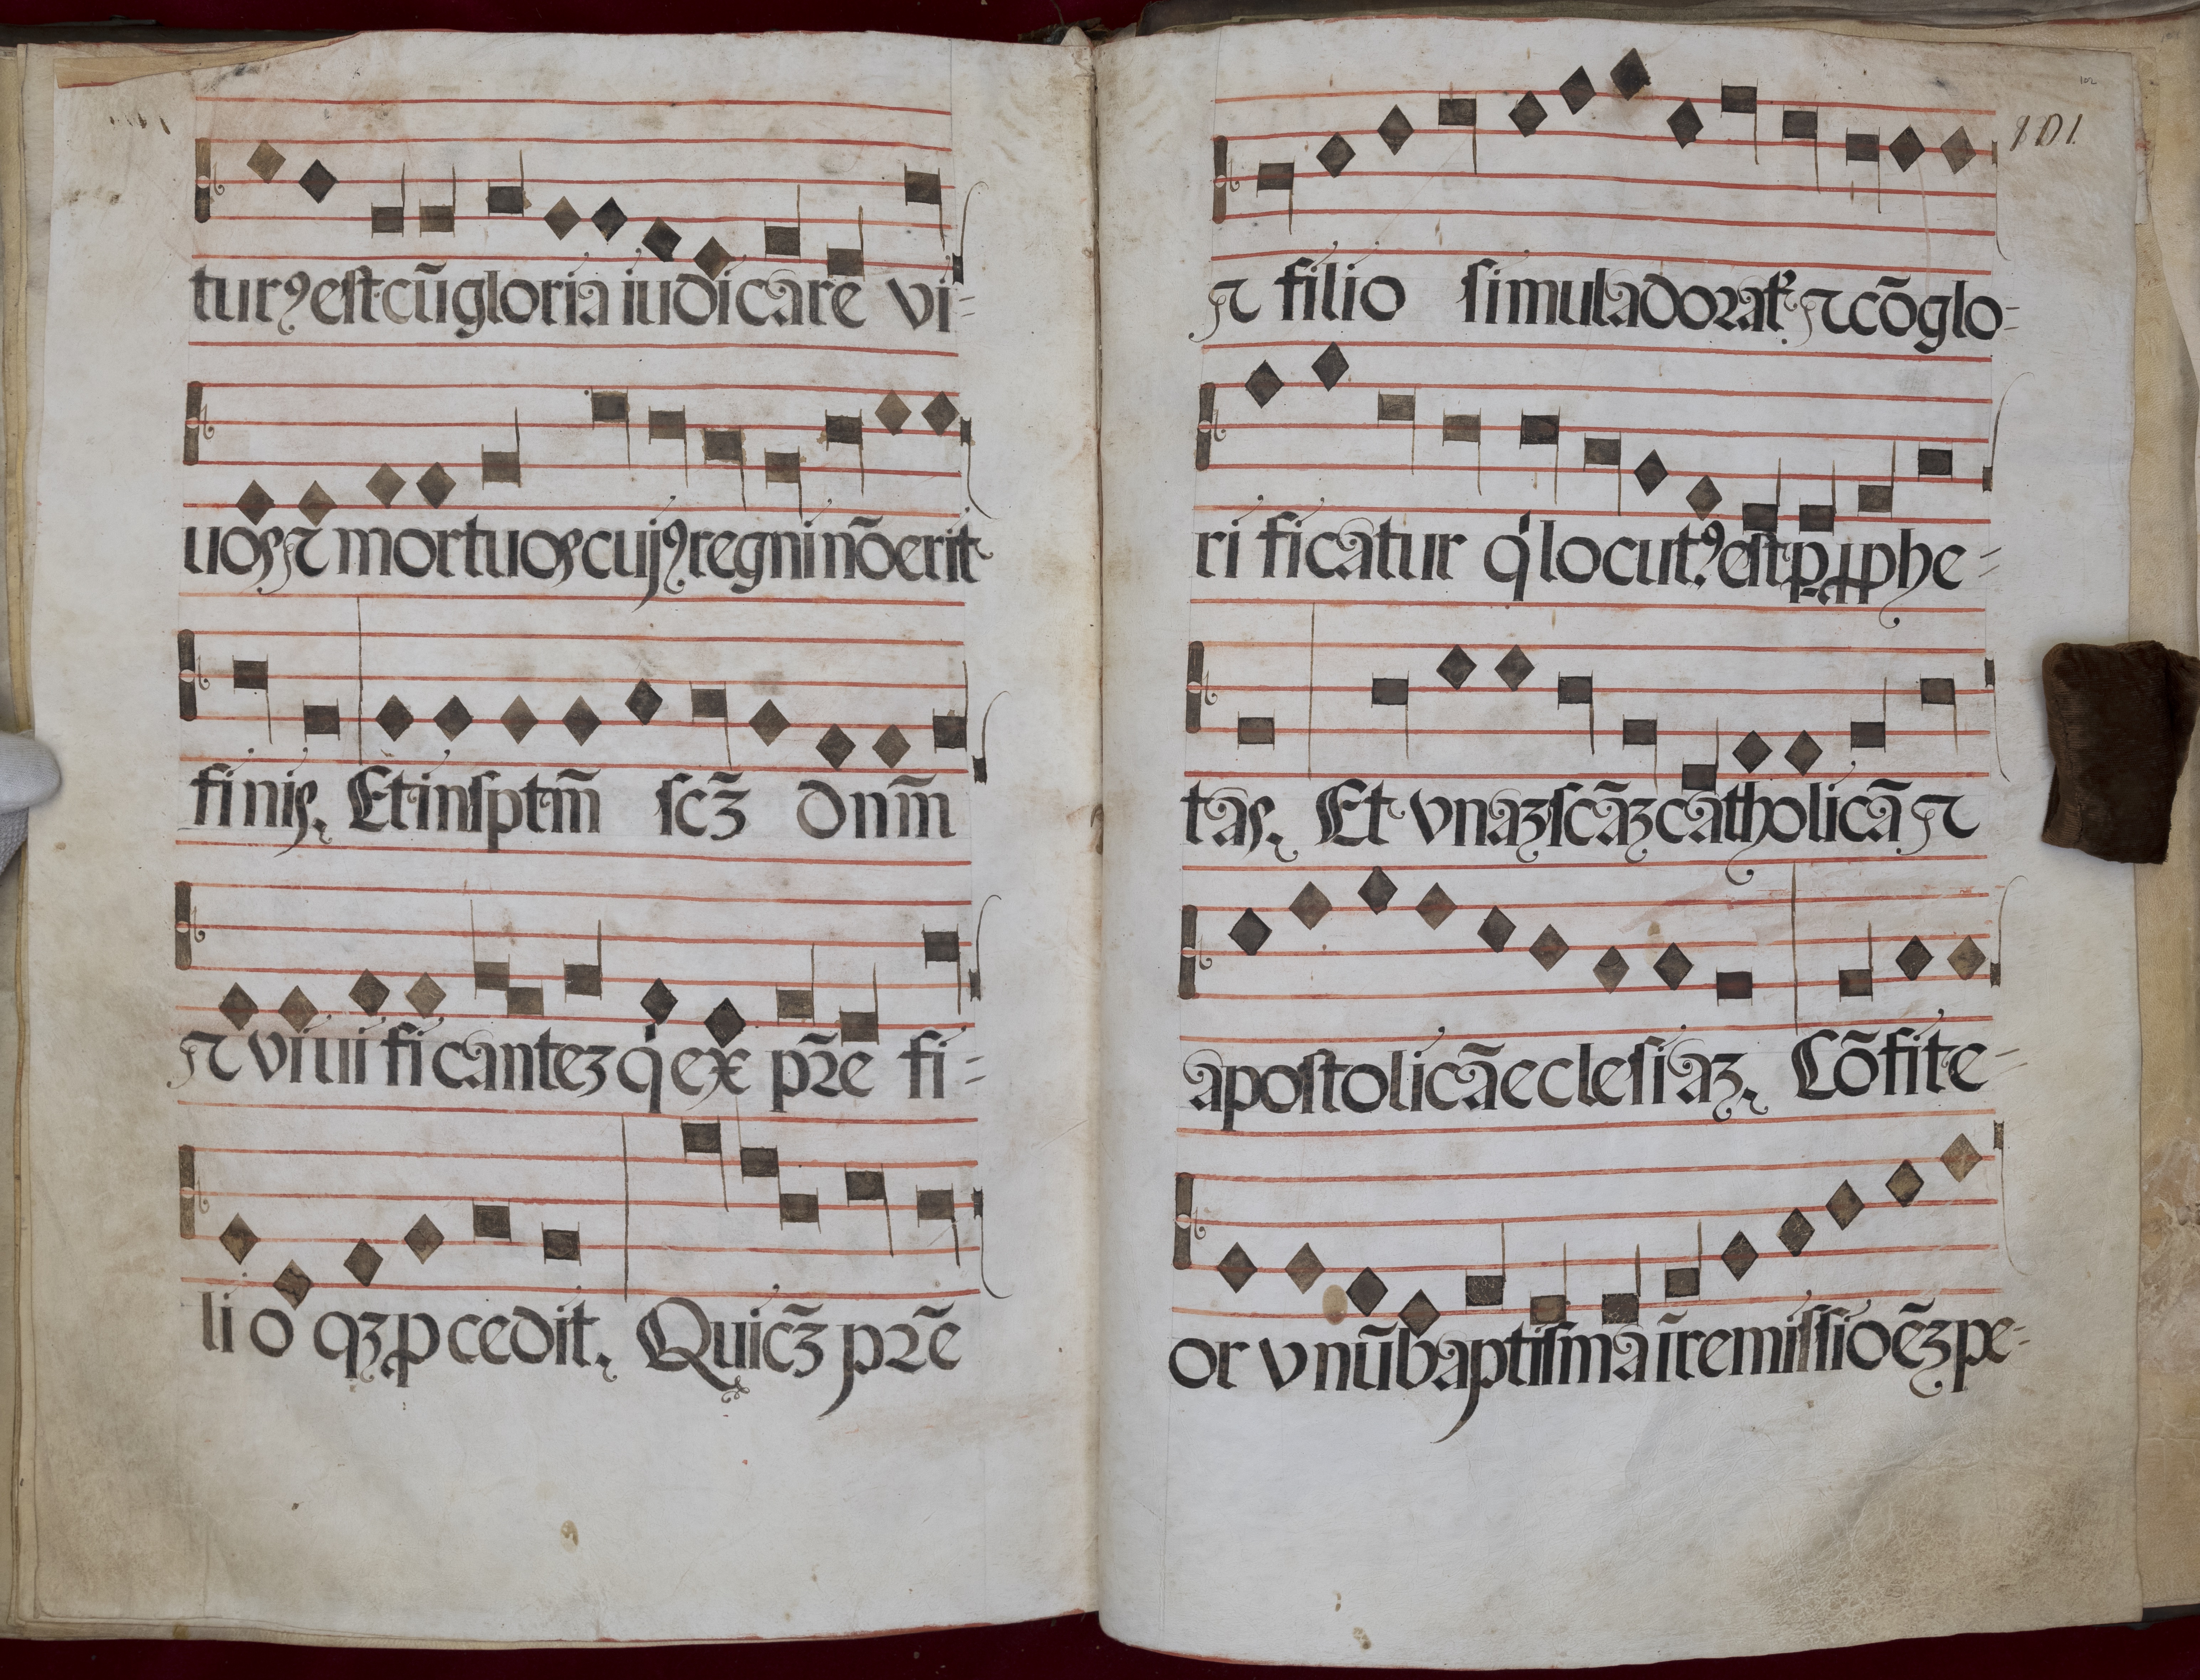 turꝯ est cū gloria iudicare vi=
uos ⁊ mortuos cujꝯ regni nō erit
finis. Et in sptm̄ scꝫ̄ dnm̄
⁊ viuificanteꝫ q̇ ex pr̄e fi=
lio qꝫ ꝓcedit. Qui cꝫ̄ pr̄e
102
101
⁊ filio simul adoratᷣ ⁊ cō glo=
rificatur q̇ locutꝯ est ꝑ ꝓphe=
tas. Et vnaꝫ scāꝫ catholicā ⁊
apostolicā eclesiaꝫ. Cōfite=
or vnū baptisma ī remissioēꝫ pe=